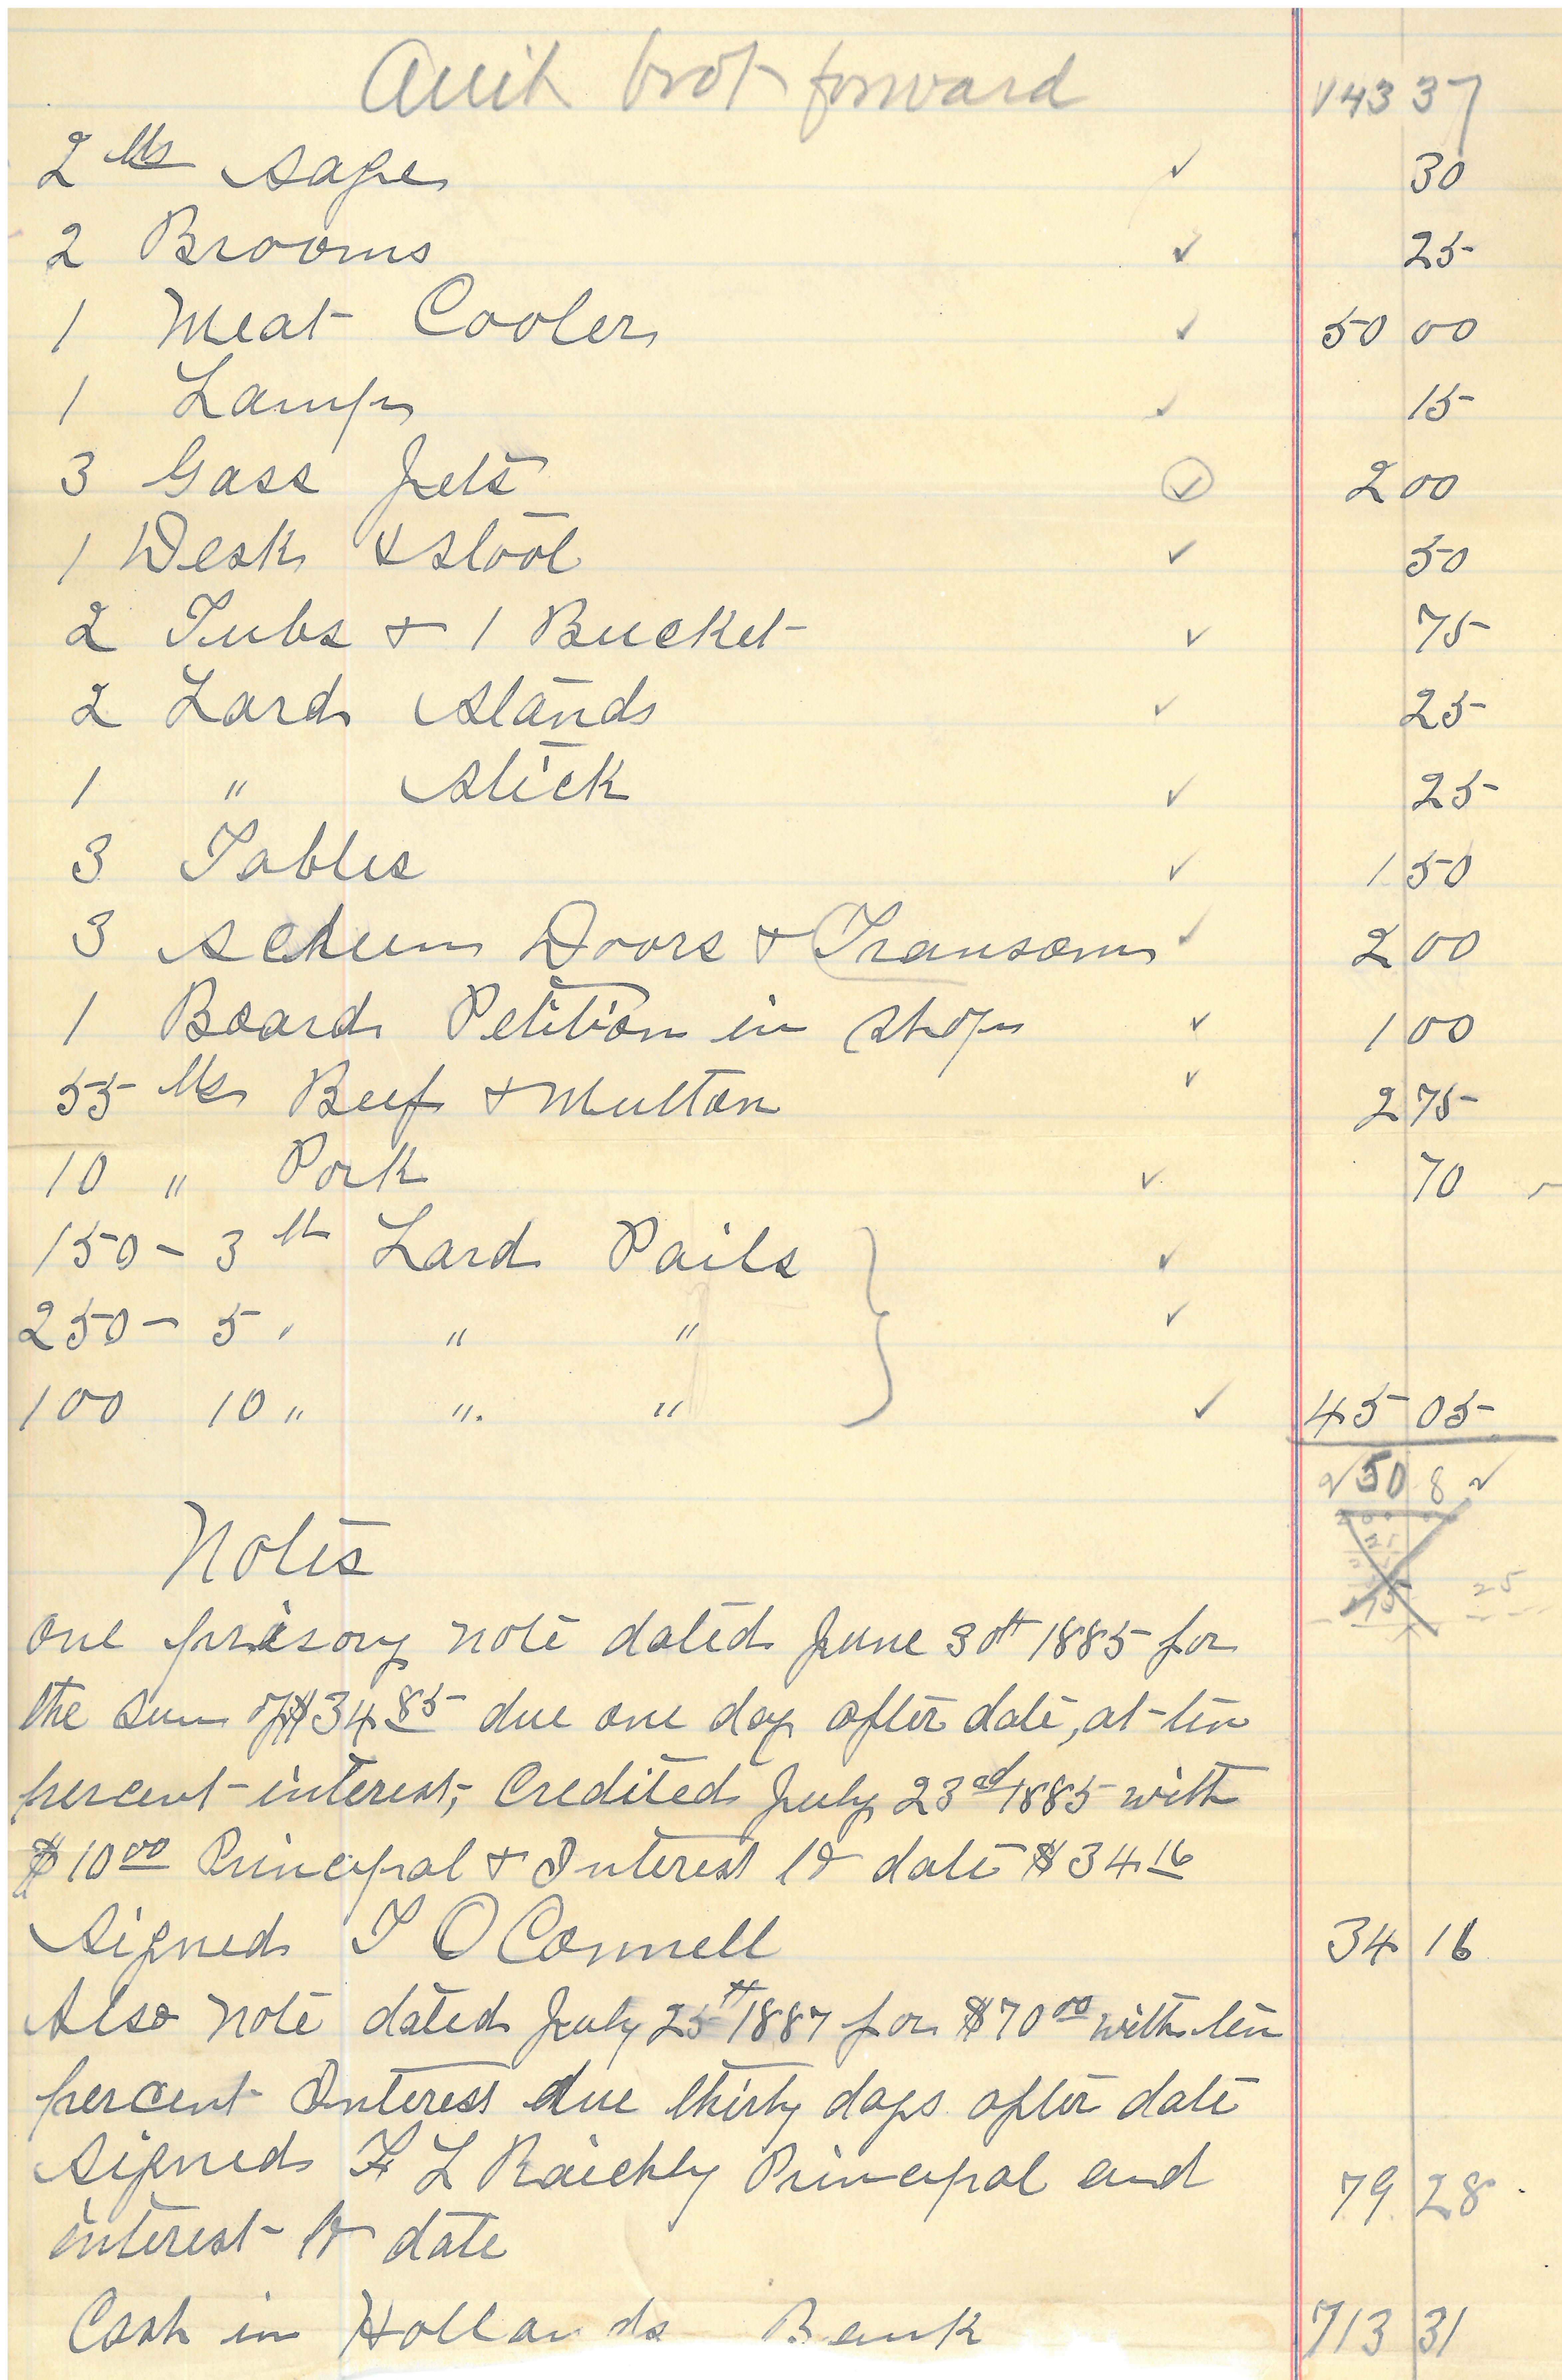 Amt brot forward 143 37
2 lbs sage ✓ 30
2 Brooms ✓ 25
1 Meat Cooler ✓ 50 00
1 Lamp ✓ 15
3 Gass Jets ✓ 2 00
1 Desk & stool ✓ 50
2 Tubs & 1 Bucket ✓ 75
2 Lard stands ✓ 25
1 " stick ✓ 25
3 Tables ✓ 1 50
3 Screen Doors & Transom ✓ 2 00
1 Board Petition in shop ✓ 1 00
55 lbs Beef & Mutton ✓ 2 75
10 " Pork ✓ 70
150 - 3 lb Lard Pails ✓
250 - 5 " " " ✓
100 10 " " " ✓ 45 05
250 8 2
Notes
25
One prisory note dated June 30th 1885 for
the sum of $34.85 due one day after date, at ten
percent interest, Credited July 23rd 1885 with
$10.00 Principal & Interest to date $34.16
Signed T O Connell 34 16
Also note dated July 25th 1887 for $70.00 with ten
percent Interest due thirty days after date
signed F L Raichly Principal and 79 28
interest to date
Cash in Hollands Bank 713 31